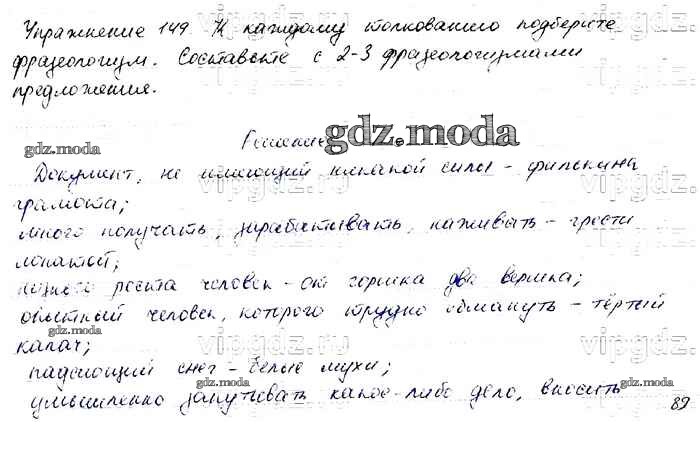 Упражнение 149. К каждому толкованию подберите
фразеологизм. Составьте с 2-3 фразеологизмами
предложения.
Решение
gdz.moda
gdz.moda
Документ, не имеющий никакой силы - филькина
грамота;
много получать, зарабатывать, наживать - грести
лопатой;
низкого роста человек - от горшка два вершка;
опытный человек, которого трудно обмануть - тёртый
калач;
падающий снег - белые мухи;
умышленно запутывать какое-либо дело, вносить
gdz.moda
gdz.moda
gdz.moda
gdz.moda
vipgdz.ru
vipgdz.ru
vipgdz.ru
89